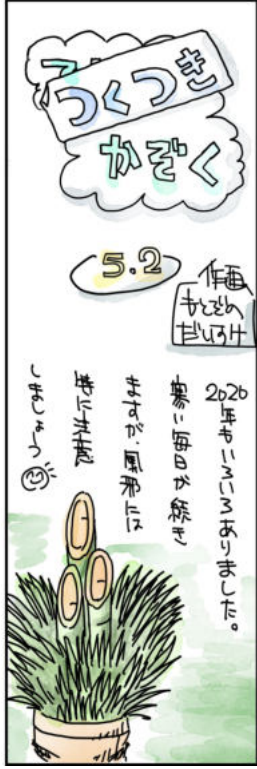 つくつき
かぞく
5.2
作画、
もとぞの
だいすけ
2020年もいろいろありました。
寒い毎日が続き
ますが、風邪には
特に注意
しましょう